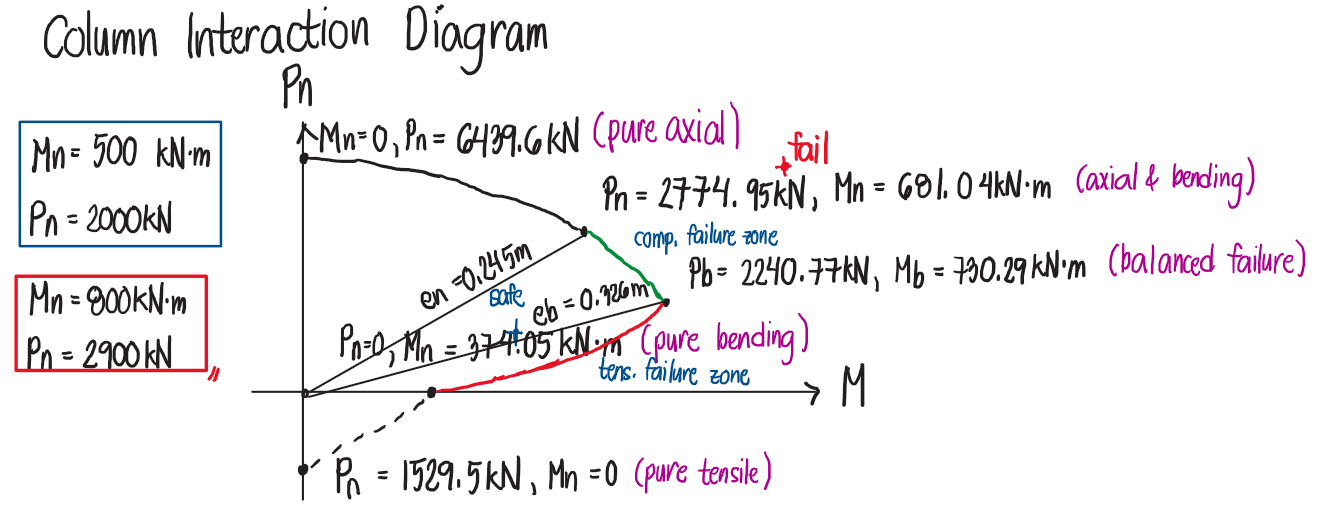 Column Interaction Diagram
Pn
Mn = 500 kN·m
Pn = 2000kN
Mn = 800kN·m
Pn = 2900kN
Mn=0, Pn = 6439.6kN (pure axial)
fail
Pn = 2774.95kN, Mn = 681.04kN·m (axial & bending)
comp. failure zone
Pb = 2240.77kN, Mb = 730.29kN·m (balanced failure)
en=0.245m
safe
eb = 0.326m
Pn=0, Mn = 374.05 kN·m (pure bending)
tens. failure zone
M
Pn = 1529.5kN, Mn =0 (pure tensile)